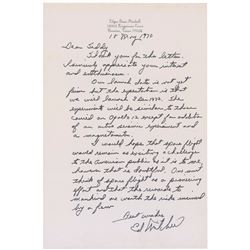 Edgar Dean Mitchell
Houston, Texas
18 May 1970
Dear Teddy,
Thank you for the letter.
I sincerely appreciate your interest
and enthusiasm.
Our launch date is not yet
firm but the expectation is that
we will launch 3 Dec. 1970. The
experiments will be similar to those
carried on Apollo 12 except for addition
of an active seismic experiment and
a magnetometer.
I would hope that space flight
would remain as exciting & challenging
to the American public as it is to me,
however that is doubtful. One must
think of space flight as a pioneering
effort and that the rewards to
mankind are worth the risks incurred
by a few.
Best wishes
Ed Mitchell